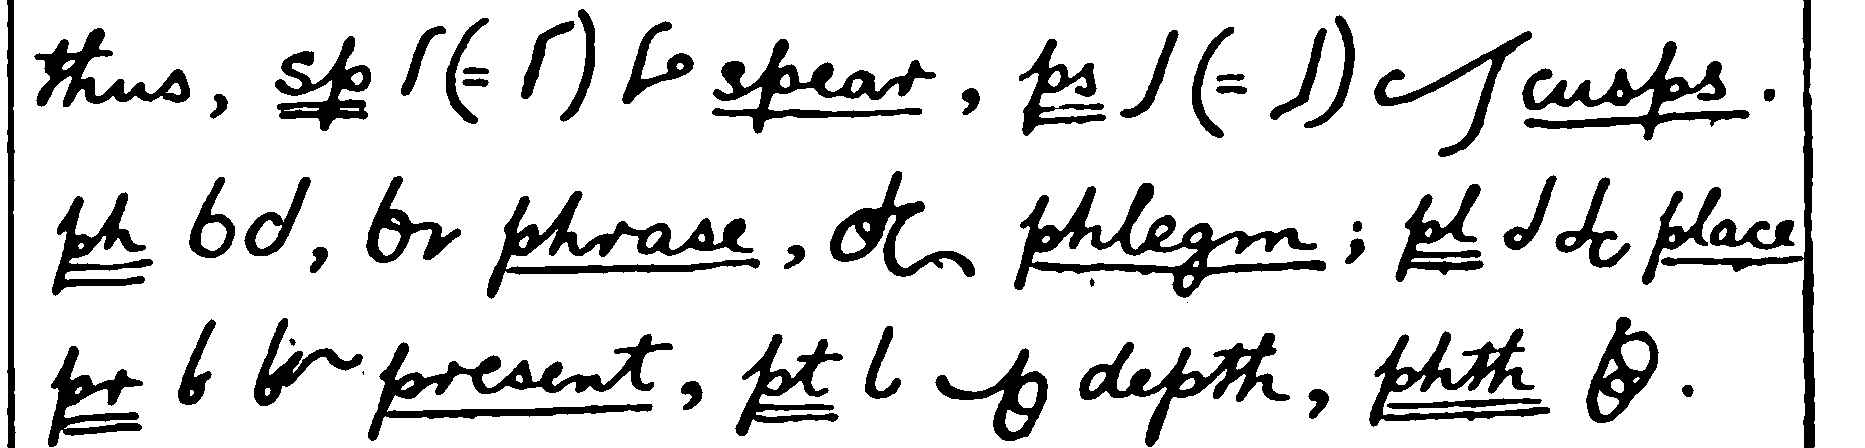 thus, sp (= ) spear, ps (= ) cusps.
ph , phrase, phlegm; pl place
pr present, pt depth, phth .